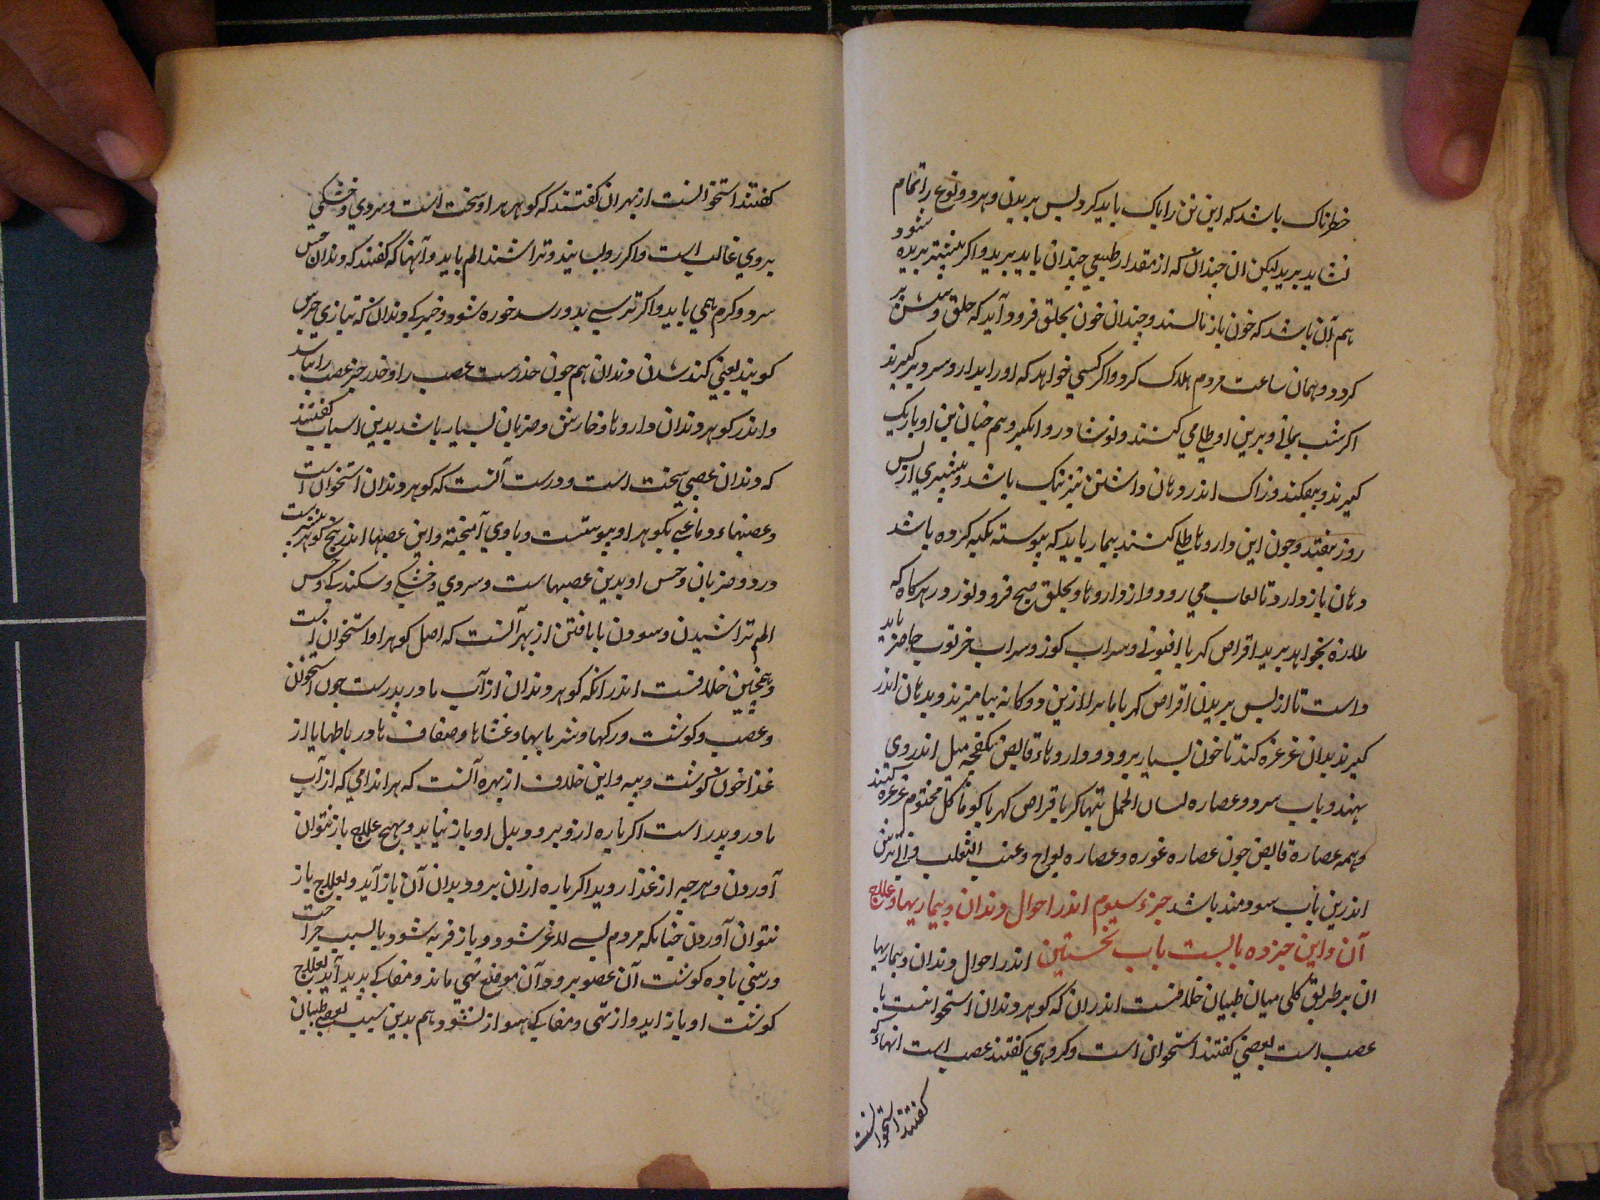 خطرناک باشد که این تن را پاک باید کرد پس بریدن و هر دو نوع را تمام
نشاید برید لیکن ان چندان که از مقدار طبیعی چندان باید برید و اکر بیشتر بریده شود
هم آن باشد که خون باز نایستد و چندان خون بحلق فرود آید که حلق و
کردد و همان ساعت مردم هلاک کردد و اکر کسی خواهد که او را بدارو سر و بر کیرند
اکر شب یمانی و برین او طلی می کنند و نوشادر و انکبر و هم چنان بن او باریک
کیرند و بیفکند و زاک اندر دهان داشتن نیز نیک باشد و بیشتری از پس
روز بیفتد و چون این داروها طلی کنند بیمار باید که پیوسته تکیه کرده باشد
دهان باز دارد تا لعاب می رود و از داروها بحلق هیچ فرو نرود و هر کاه که
ملازه بخواهد برید اقراص کهربا افیونی و سراب کوز و سراب خرنوب حاضر باید
داشت تا از پس بریدن اقراص کهربا با سرابها ازین دو کانه بیامیزند و بدهان اندر
کیرند بدان غرغره کند تا خون بسیار نرود و داروهاء قابض بکفچه میل اندر وی
نهند و باب سرد و عصاره لسان الحمل تنها کر با قراص کهربا کو با کل مختوم غرغره کنند
و همه عصاره قابض چون عصاره غوره و عصاره لواح و عنب الثعلب
اندرین باب سودمند باشد جزء سیوم اندر احوال دندان و بیماریها و علاج
آن و این جزو ده بابست باب نخستین اندر احوال دندان و بیماریها
ان بر طریق کلی میان طبیبان خلافست اندر ان که کوهر دندان استخوانست یا
عصب است بعضی کفتند استخوان است و کروهی کفتند عصب است انها که
کفتند استخوانست
کفتند استخوانست از بهر ان کفتند که کوهر هر او سخت است و سردی و خشکی
بروی غالب است و اکر روبسایند و تراشند الم یابد و آنها که کفتند که دندان حس
سرد و کرم همی یابد و اکر ترسی بدو رسد خورده شود و خیرکی دندان که بتازی ضرس
کویند یعنی کند شدن دندان هم چون خدرست عصب را و خدر جز عصب را نباشد
و اندر کوهر دندان داروها و خاریدن و ضربان بسیار باشد بدین اسباب کفتند
که دندان عصبی سخت است و درست آنست که کوهر دندان استخوان است
و عصبهاء دماغی بکوهر او پیوستست و با وی آمیخته و این عصبها اندر بیخ کوهر بیشترست
درد و ضربان و حس او بدین عصبهاست و سردی و خشکی و سکندکی و حس
الم تراشیدن و سودن نا یافتن از بهر آنست که اصل کوهر او استخوان است
و همچنین خلافست اندر انکه کوهر دندان از آب مادر پدرست چون استخوان
و عصب و کوشت و رکها و شریانها و غشاها و صفاقها و رباطها یا از
غذا خون کوشت و پیه و این خلاف از بهره آنست که هر اندامی که از آب
مادر و پدر است اکر پاره ازو ببرد بدل او باز نیاید و بهیچ علاج باز نتوان
آوردن و هر چه از غذا روید اکر پاره ازان ببرد بدان آن باز آید و بعلاج باز
نتوان آوردن چنانکه مردم بسی لاغر شود و باز فربه شود یا بسبب جراحت
و ریشی پاره کوشت آن عضو ببرد و آن موضع تهی ماند و مغاکی پدید آید بعلاج
کوشت او باز اید و از تهی و مغاکی هموار نشود و هم بدین سبب بعضی طبیبان